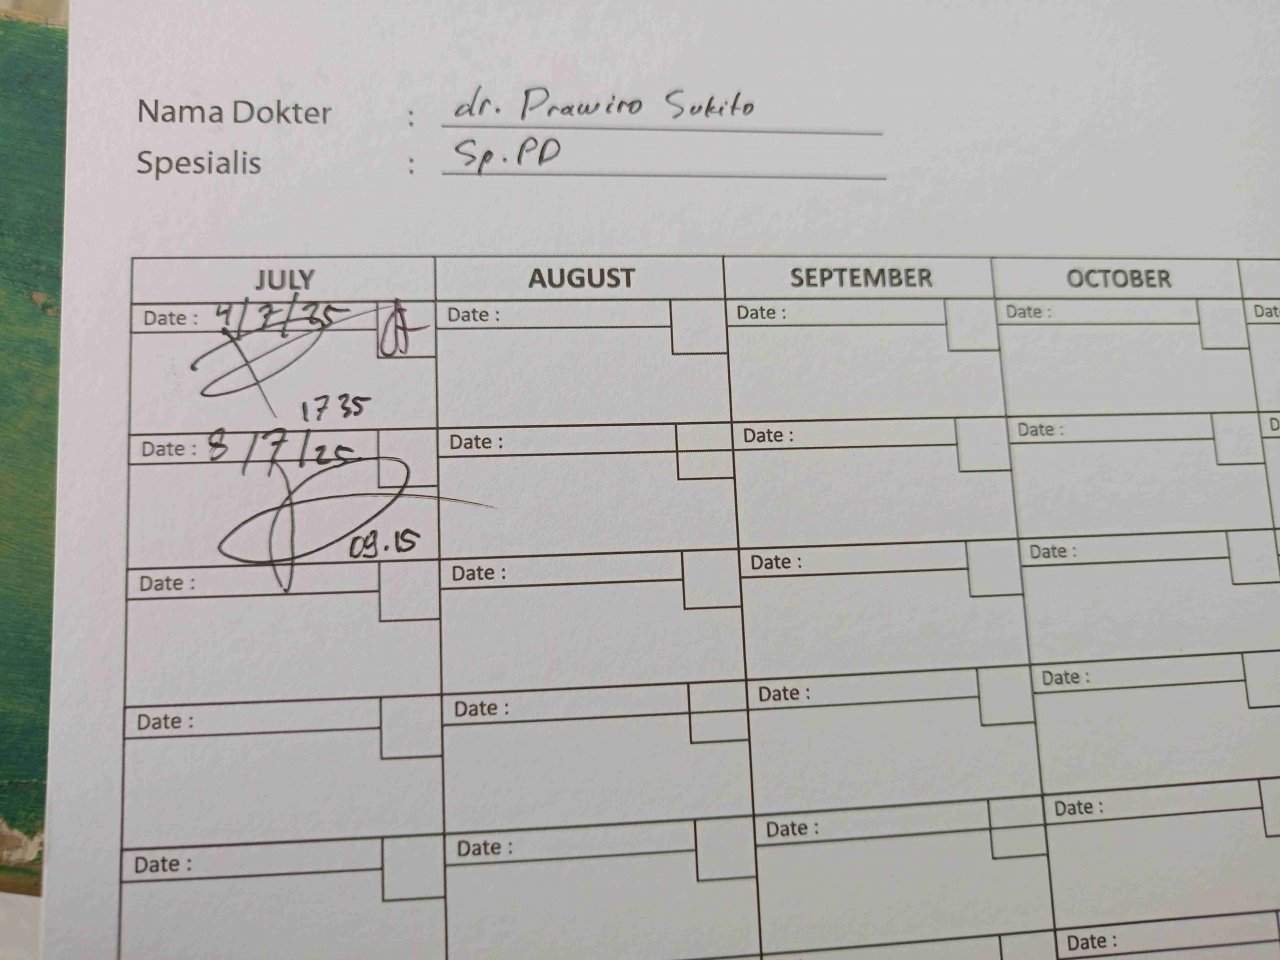 Nama Dokter : dr. Prawiro Sukito
Spesialis : Sp.PD
JULY AUGUST SEPTEMBER OCTOBER
Date : 4/7/25 Date : Date : Date : Dat
1735
Date : 8/7/25 Date : Date : Date : D
09.15
Date : Date : Date : Date :
Date : Date : Date : Date :
Date : Date : Date : Date :
Date :